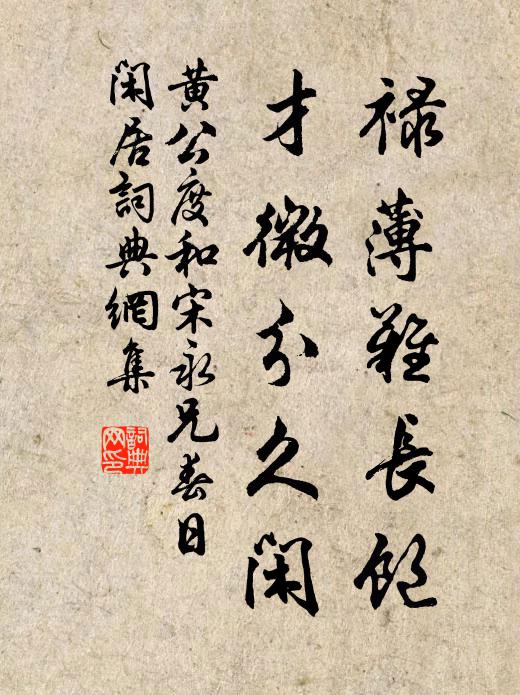 禄薄難長飽
才微分久閑
黄公度和宋永兄春日
閑居詞典網集
詞典
网印